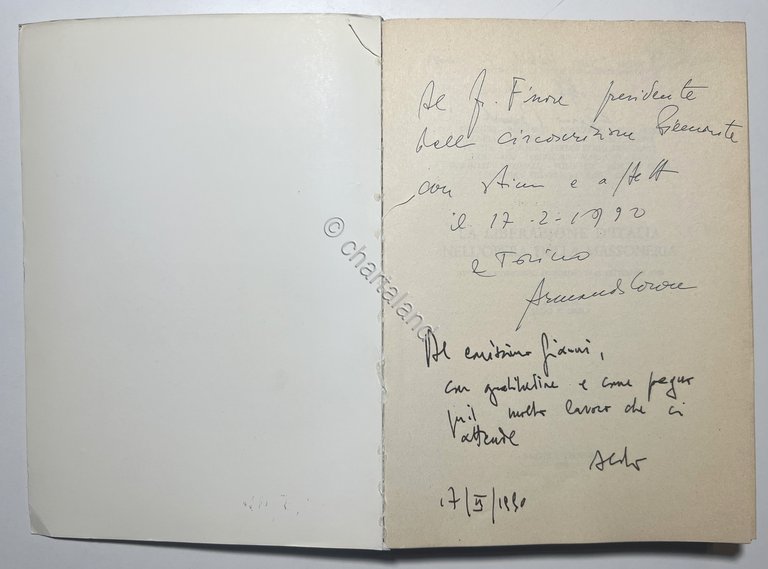 Al fr. Fiore presidente
della circoscrizione Piemonte
con stima e affetto
il 17-2-1990
a Torino
Armando Corona
Al carissimo Gianni,
con gratitudine e come pegno
per il molto lavoro che ci
attende
Aldo
17/II/1990
© chartaland
LA LIBERAZIONE D'ITALIA
NELL'OPERA DELLA MASSONERIA